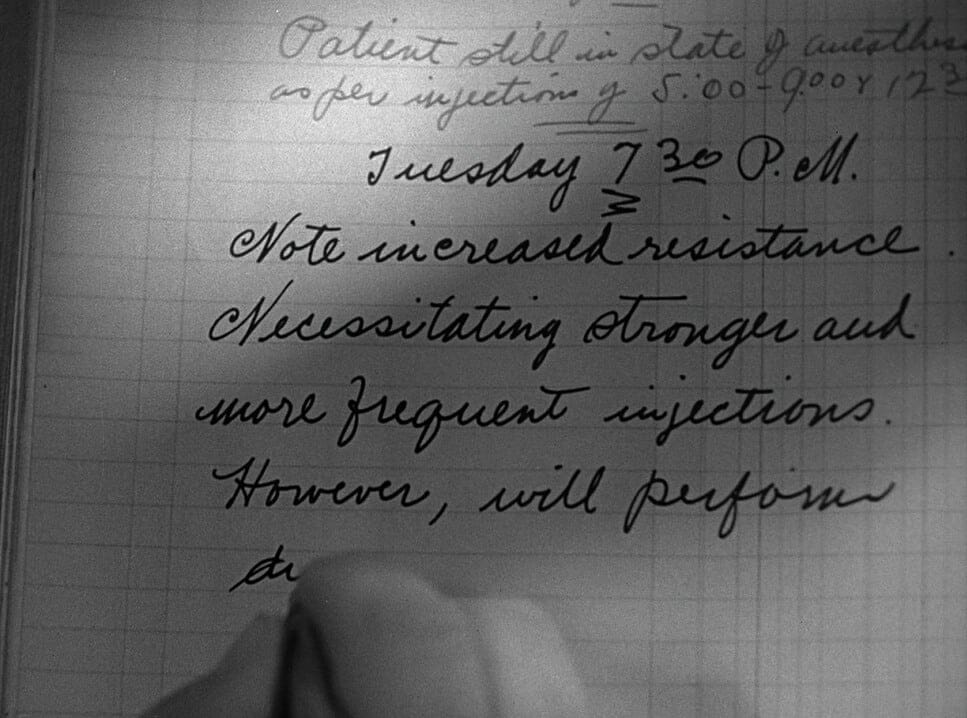 Patient still in state of anesthes
as per injections of 5:00 - 9:00 & 12 3
Tuesday 7 30 P.M.
Note increased resistance.
Necessitating stronger and
more frequent injections.
However, will perform